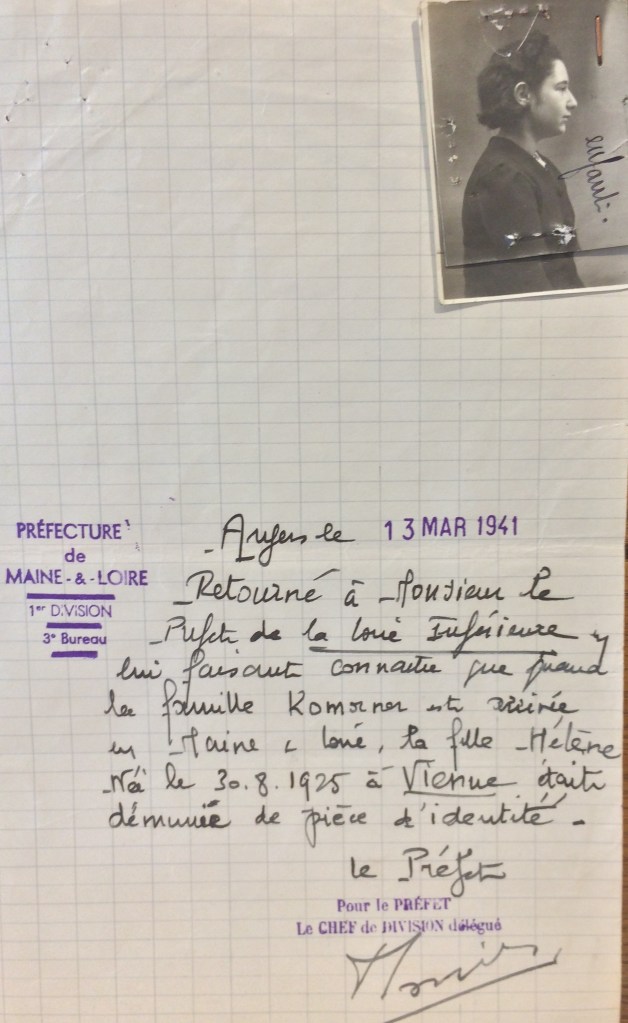 enfant.
PRÉFECTURE
de
MAINE-&-LOIRE
1er DIVISION
3e Bureau
Angers le 13 MAR 1941
Retourné à Monsieur le
Préfet de la Loire Inférieure en
lui faisant connaitre que quand
la famille Komorner est arrivée
en Maine & Loire, la fille Hélène
Née le 30.8.1925 à Vienne était
démunie de pièce d'identité -
le Préfet
Pour le PRÉFET
Le CHEF de DIVISION délégué